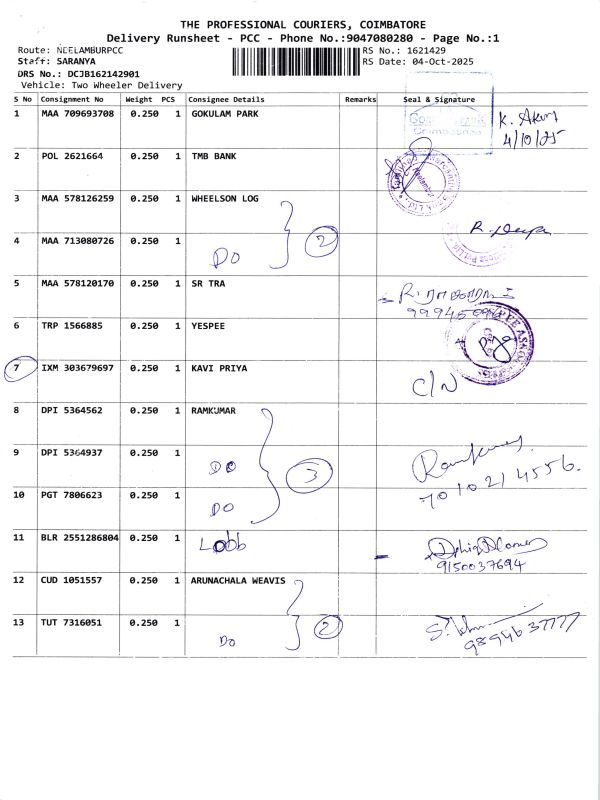 THE PROFESSIONAL COURIERS, COIMBATORE
Delivery Runsheet - PCC - Phone No.:9047080280 - Page No.:1
Route: NEELAMBURPCC
RS No.: 1621429
Staff: SARANYA
RS Date: 04-Oct-2025
DRS No.: DCJB162142901
Vehicle: Two Wheeler Delivery
S No Consignment No Weight PCS Consignee Details Remarks Seal & Signature
1 MAA 709693708 0.250 1 GOKULAM PARK
4/10/25
2 POL 2621664 0.250 1 TMB BANK
3 MAA 578126259 0.250 1 WHEELSON LOG
2
4 MAA 713080726 0.250 1 DO
5 MAA 578120170 0.250 1 SR TRA
6 TRP 1566885 0.250 1 YESPEE
7 IXM 303679697 0.250 1 KAVI PRIYA C/N
8 DPI 5364562 0.250 1 RAMKUMAR
9 DPI 5364937 0.250 1 DO
3
7010214556.
10 PGT 7806623 0.250 1 DO
11 BLR 2551286804 0.250 1
9150037694
12 CUD 1051557 0.250 1 ARUNACHALA WEAVIS
13 TUT 7316051 0.250 1 DO
2
9894637777